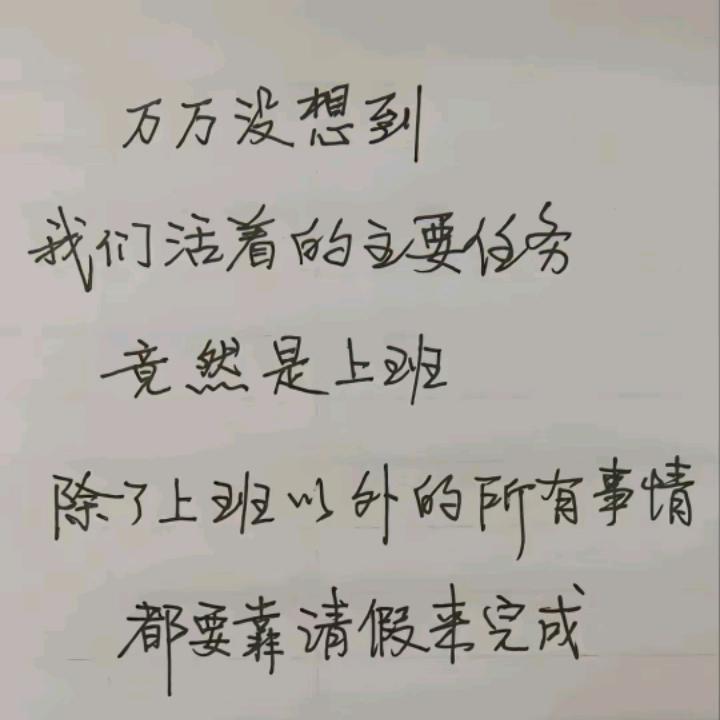 万万没想到
我们活着的主要任务
竟然是上班
除了上班以外的所有事情
都要靠请假来完成